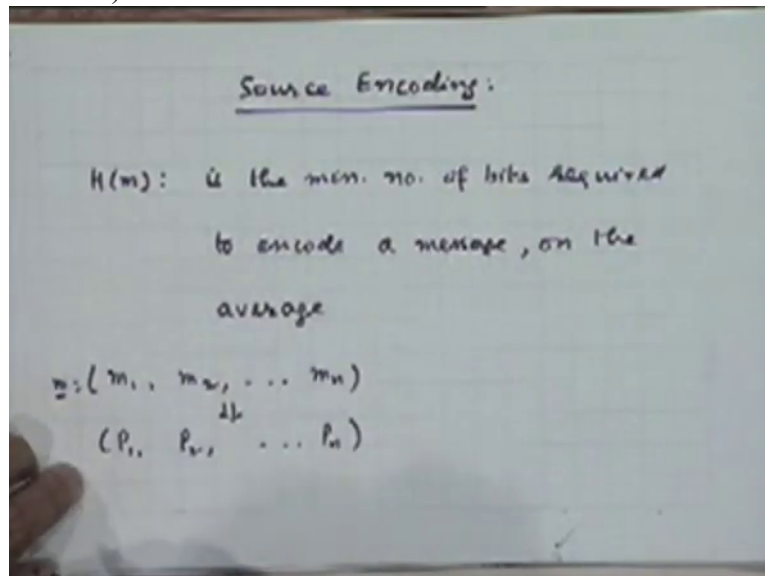 Source Encoding:
H(m): is the min. no. of bits required
to encode a message, on the
average
m:(m1, m2, ... mn)
(P1, P2, ... Pn)